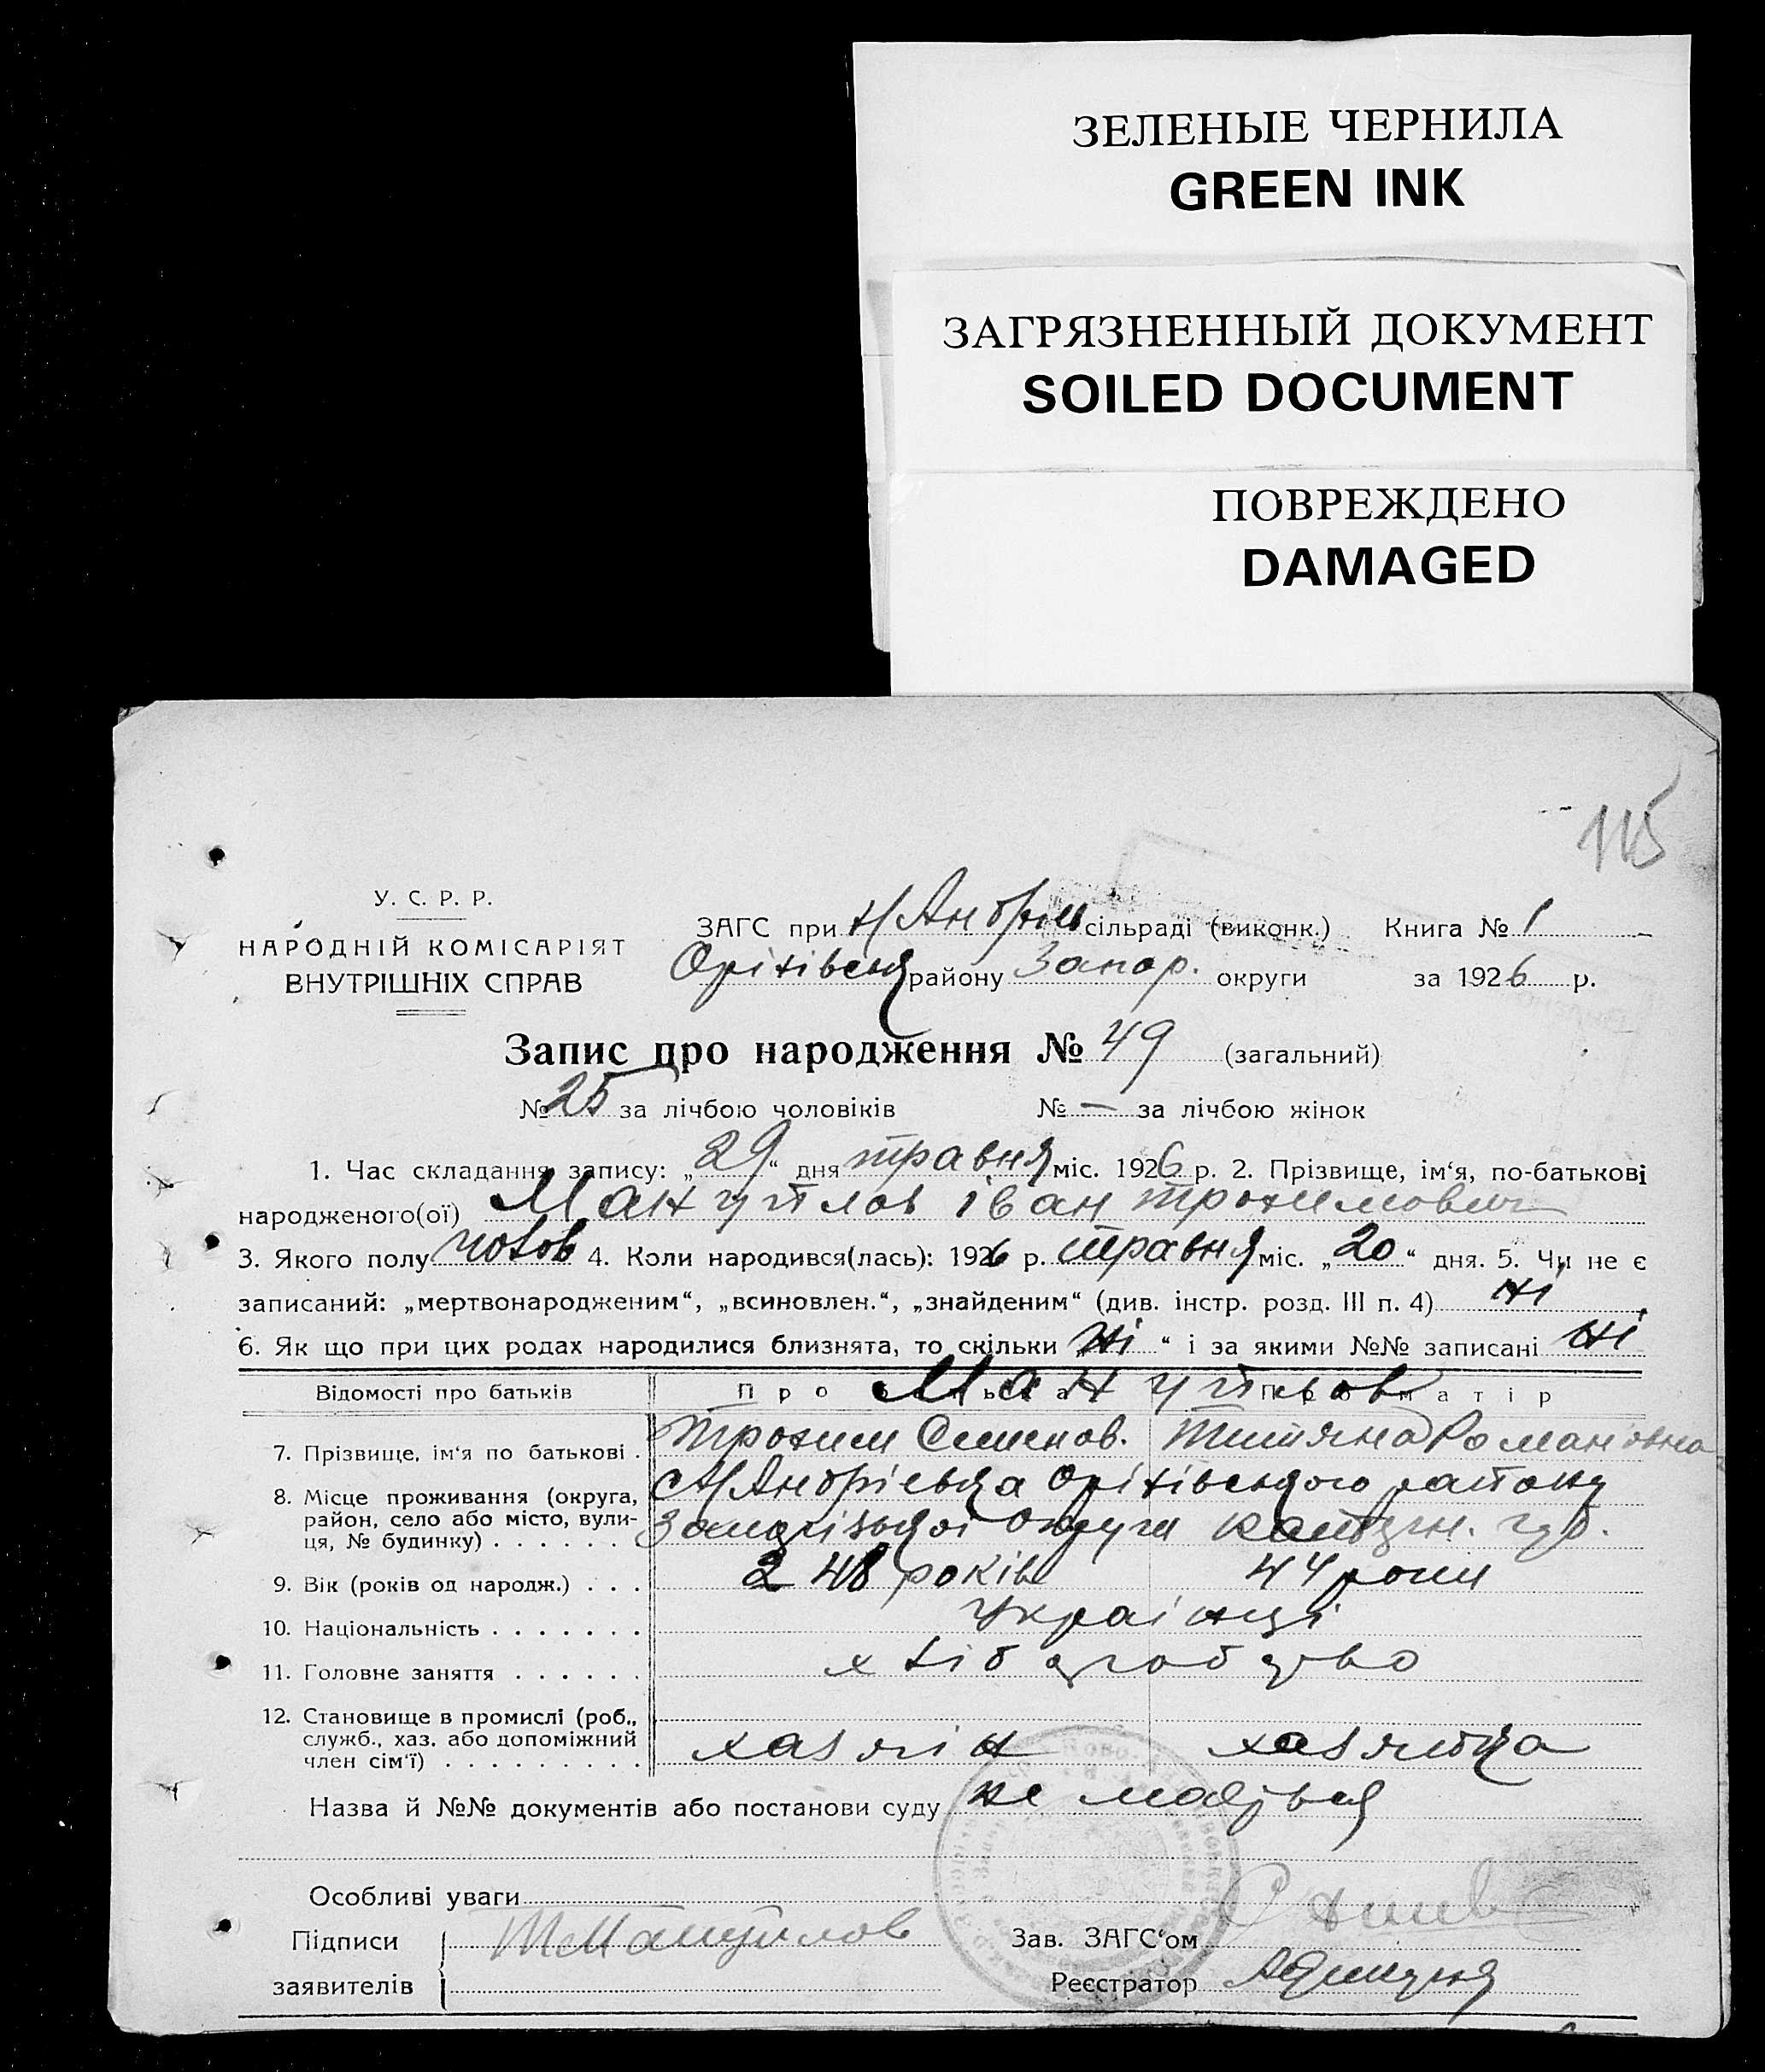 ЗЕЛЕНЫЕ ЧЕРНИЛА
GREEN INK
ЗАГРЯЗНЕННЫЙ ДОКУМЕНТ
SOILED DOCUMENT
ПОВРЕЖДЕНО
DAMAGED
115
У. С. Р. Р.
НАРОДНІЙ КОМІСАРІЯТ
ВНУТРІШНІХ СПРАВ
ЗАГС при Н Андрів сільраді (виконк.) Книга № 1
Оріхівськ району Запор. округи за 1926 р.
Запис про народження № 49 (загальний)
№ 25 за лічбою чоловіків № — за лічбою жінок
1. Час складання запису: „29“ дня травня міс. 1926 р. 2. Прізвище, ім‘я, по-батькові
народженого(ої) Мануйлов Іван Трохимович
3. Якого полу чолов 4. Коли народився(лась): 1926 р. травня міс. „20“ дня. 5. Чи не є
записаний: „мертвонародженим“, „всиновлен.“, „знайденим“ (див. інстр. розд. III п. 4) ні
6. Як що при цих родах народилися близнята, то скільки „ні“ і за якими №№ записані ні
Відомості про батьків Про батька Мануйлов Про матір
7. Прізвище, ім‘я по батькові . Трохим Семенов. Титяна Романовна
8. Місце проживання (округа, Н Андріевка Оріхівського району
район, село або місто, вули-
ця, № будинку) . . . . . . Запорізькоі Округи
9. Вік (років од народж.) . . . 48 років 44 роки
10. Національність . . . . . . . Украінці
11. Головне заняття . . . . . . хлібодробство
12. Становище в промислі (роб.,
служб., хаз. або допоміжний
член сім‘ї) . . . . . . . . . хазяін хазяйка
Назва й №№ документів або постанови суду не маєтся
Особливі уваги
Підписи Т Мануйлов Зав. ЗАГС‘ом
заявителів Реєстратор